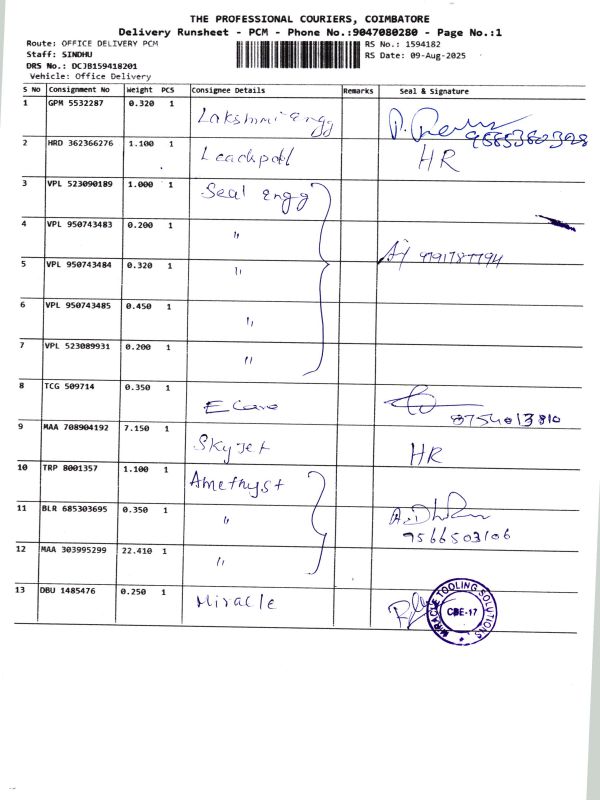 THE PROFESSIONAL COURIERS, COIMBATORE
Delivery Runsheet - PCM - Phone No.:9047080280 - Page No.:1
Route: OFFICE DELIVERY PCM
RS No.: 1594182
Staff: SINDHU
RS Date: 09-Aug-2025
DRS No.: DCJB159418201
Vehicle: Office Delivery
S No Consignment No Weight PCS Consignee Details Remarks Seal & Signature
1 GPM 5532287 0.320 1 Lakshmi engg
2 HRD 362366276 1.100 1 HR
3 VPL 523090189 1.000 1 Seal engg
4 VPL 950743483 0.200 1 "
5 VPL 950743484 0.320 1 "
6 VPL 950743485 0.450 1 "
7 VPL 523089931 0.200 1 "
8 TCG 509714 0.350 1 8754013810
9 MAA 708904192 7.150 1 Skyjet HR
10 TRP 8001357 1.100 1 Amethyst
11 BLR 685303695 0.350 1 " 9566503106
12 MAA 303995299 22.410 1 "
13 DBU 1485476 0.250 1 Miracle
MIRACLE TOOLING SOLUTIONS
CBE-17